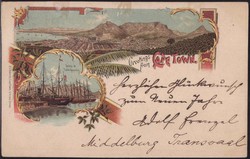 Greetings from
Cape Town.
Herzlichen Glückwunsch
zum Neuen Jahre
Adolf Frenzel
Middelburg Transvaal